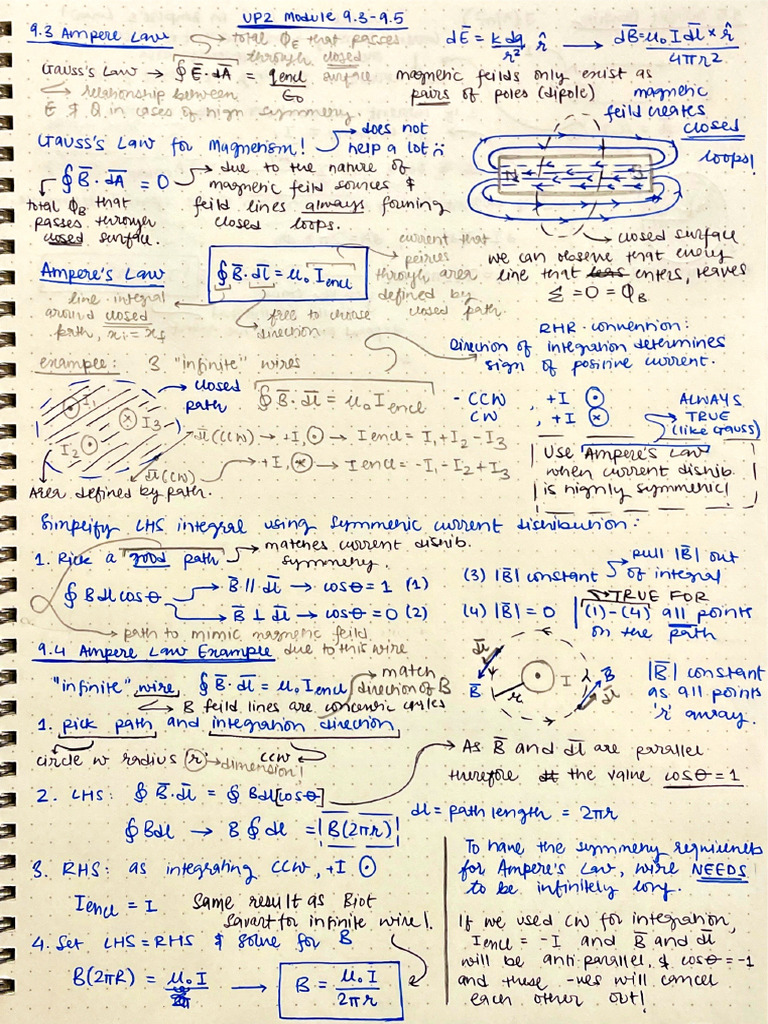 UP2 Module 9.3-9.5
9.3 Ampere Law
total ΦE that passes
through closed
surface
dE = k dq / r² r̂ → dB = μ₀ I dl × r̂ / 4πr²
Gauss's Law → ∮ E · dA = qencl / ε₀
relationship between
E & Q in cases of high symmetry.
magnetic feilds only exist as
pairs of poles (dipole)
magnetic
feild creates
closed
loops!
Gauss's Law for Magnetism!
does not
help a lot :(
∮ B · dA = 0
due to the nature of
magnetic feild sources &
feild lines always forming
closed loops.
total ΦB that
passes through
closed surface.
N S
closed surface
we can observe that every
line that enters, leaves
Σ = 0 = ΦB
Ampere's Law
∮ B · dl = μ₀ Iencl
current that
through area
defined by
closed path.
line integral
around closed
path, xi = xf
free to choose
direction
RHR convention:
Direction of integration determines
sign of positive current.
example: 3 "infinite" wires
closed
path
∮ B · dl = μ₀ Iencl
- CCW , +I ⊙
CW , +I ⊗
ALWAYS
TRUE
(like Gauss)
I₁
I₃
I₂
dl (CCW) → +I, ⊙ → Iencl = I₁ + I₂ - I₃
dl (CW) → +I, ⊗ → Iencl = -I₁ - I₂ + I₃
Area defined by path.
Use Ampere's Law
when current distrib.
is highly symmetric!
Simplify LHS integral using symmetric current distribution:
1. Pick a "good" path
matches current distrib.
symmetry.
∮ B dl cosθ → B ∥ dl → cosθ = 1 (1)
→ B ⊥ dl → cosθ = 0 (2)
(3) |B| constant
pull |B| out
of integral
(4) |B| = 0
TRUE FOR
(1)-(4) all points
on the path
path to mimic magnetic feild
due to this wire
9.4 Ampere Law Example
"infinite" wire ∮ B · dl = μ₀ Iencl
match
direction of B
B feild lines are concentric circles
1. pick path and integration direction
circle w radius 'r' → dimension!
CCW
dl
B
r
I
B
dl
|B| constant
as all points
'r' away.
As B and dl are parallel
therefore the value cosθ = 1
2. LHS: ∮ B · dl = ∮ B dl [cosθ]
∮ B dl → B ∮ dl = B(2πr)
dl = path length = 2πr
3. RHS: as integrating CCW, +I ⊙
Iencl = I
Same result as Biot
Savart for infinite wire!
4. Set LHS = RHS & solve for B
B(2πR) = μ₀ I → B = μ₀ I / 2πr
To have the symmetry requirements
for Ampere's Law, wire NEEDS
to be infinitely long.
If we used CW for integration,
Iencl = -I and B and dl
will be anti parallel, & cosθ = -1
and these -ves will cancel
each other out!